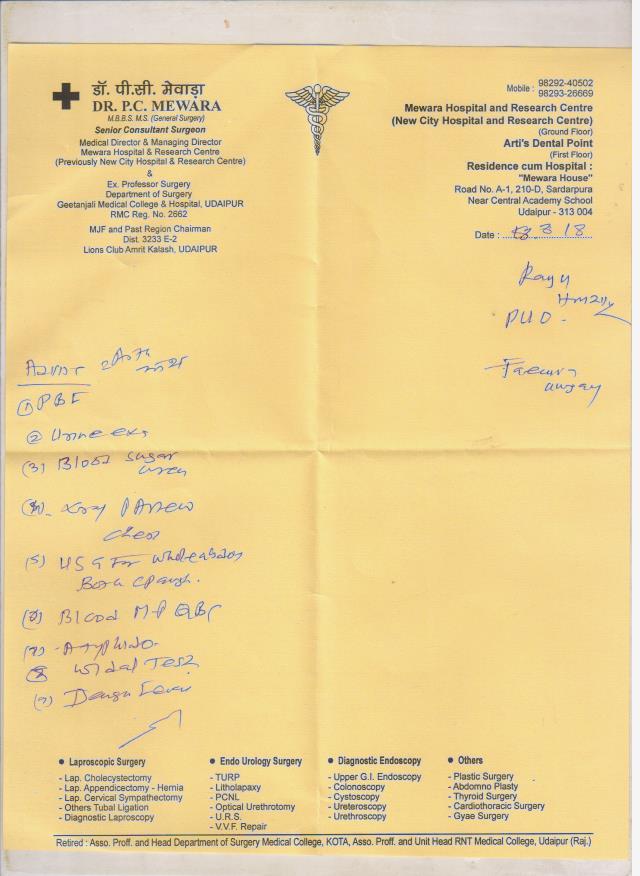 डॉ. पी.सी. मेवाड़ा
DR. P.C. MEWARA
M.B.B.S. M.S. (General Surgery)
Senior Consultant Surgeon
Medical Director & Managing Director
Mewara Hospital & Research Centre
(Previously New City Hospital & Research Centre)
&
Ex. Professor Surgery
Department of Surgery
Geetanjali Medical College & Hospital, UDAIPUR
RMC Reg. No. 2662
MJF and Past Region Chairman
Dist. 3233 E-2
Lions Club Amrit Kalash, UDAIPUR
Mobile : 98292-40502
98293-26669
Mewara Hospital and Research Centre
(New City Hospital and Research Centre)
(Ground Floor)
Arti's Dental Point
(First Floor)
Residence cum Hospital :
"Mewara House"
Road No. A-1, 210-D, Sardarpura
Near Central Academy School
Udaipur - 313 004
Date : 3 18
PUO -
① PBF
② Urine
(3) Blood sugar
urea
Xray
Chest
(5) USG For
Blood MP QBC
Widal Test
(9)
Laproscopic Surgery
- Lap. Cholecystectomy
- Lap. Appendicectomy - Hernia
- Lap. Cervical Sympathectomy
- Others Tubal Ligation
- Diagnostic Laproscopy
Endo Urology Surgery
- TURP
- Litholapaxy
- PCNL
- Optical Urethrotomy
- U.R.S.
- V.V.F. Repair
Diagnostic Endoscopy
- Upper G.I. Endoscopy
- Colonoscopy
- Cystoscopy
- Ureteroscopy
- Urethroscopy
Others
- Plastic Surgery
- Abdomno Plasty
- Thyroid Surgery
- Cardiothoracic Surgery
- Gyae Surgery
Retired : Asso. Proff. and Head Department of Surgery Medical College, KOTA, Asso. Proff. and Unit Head RNT Medical College, Udaipur (Raj.)